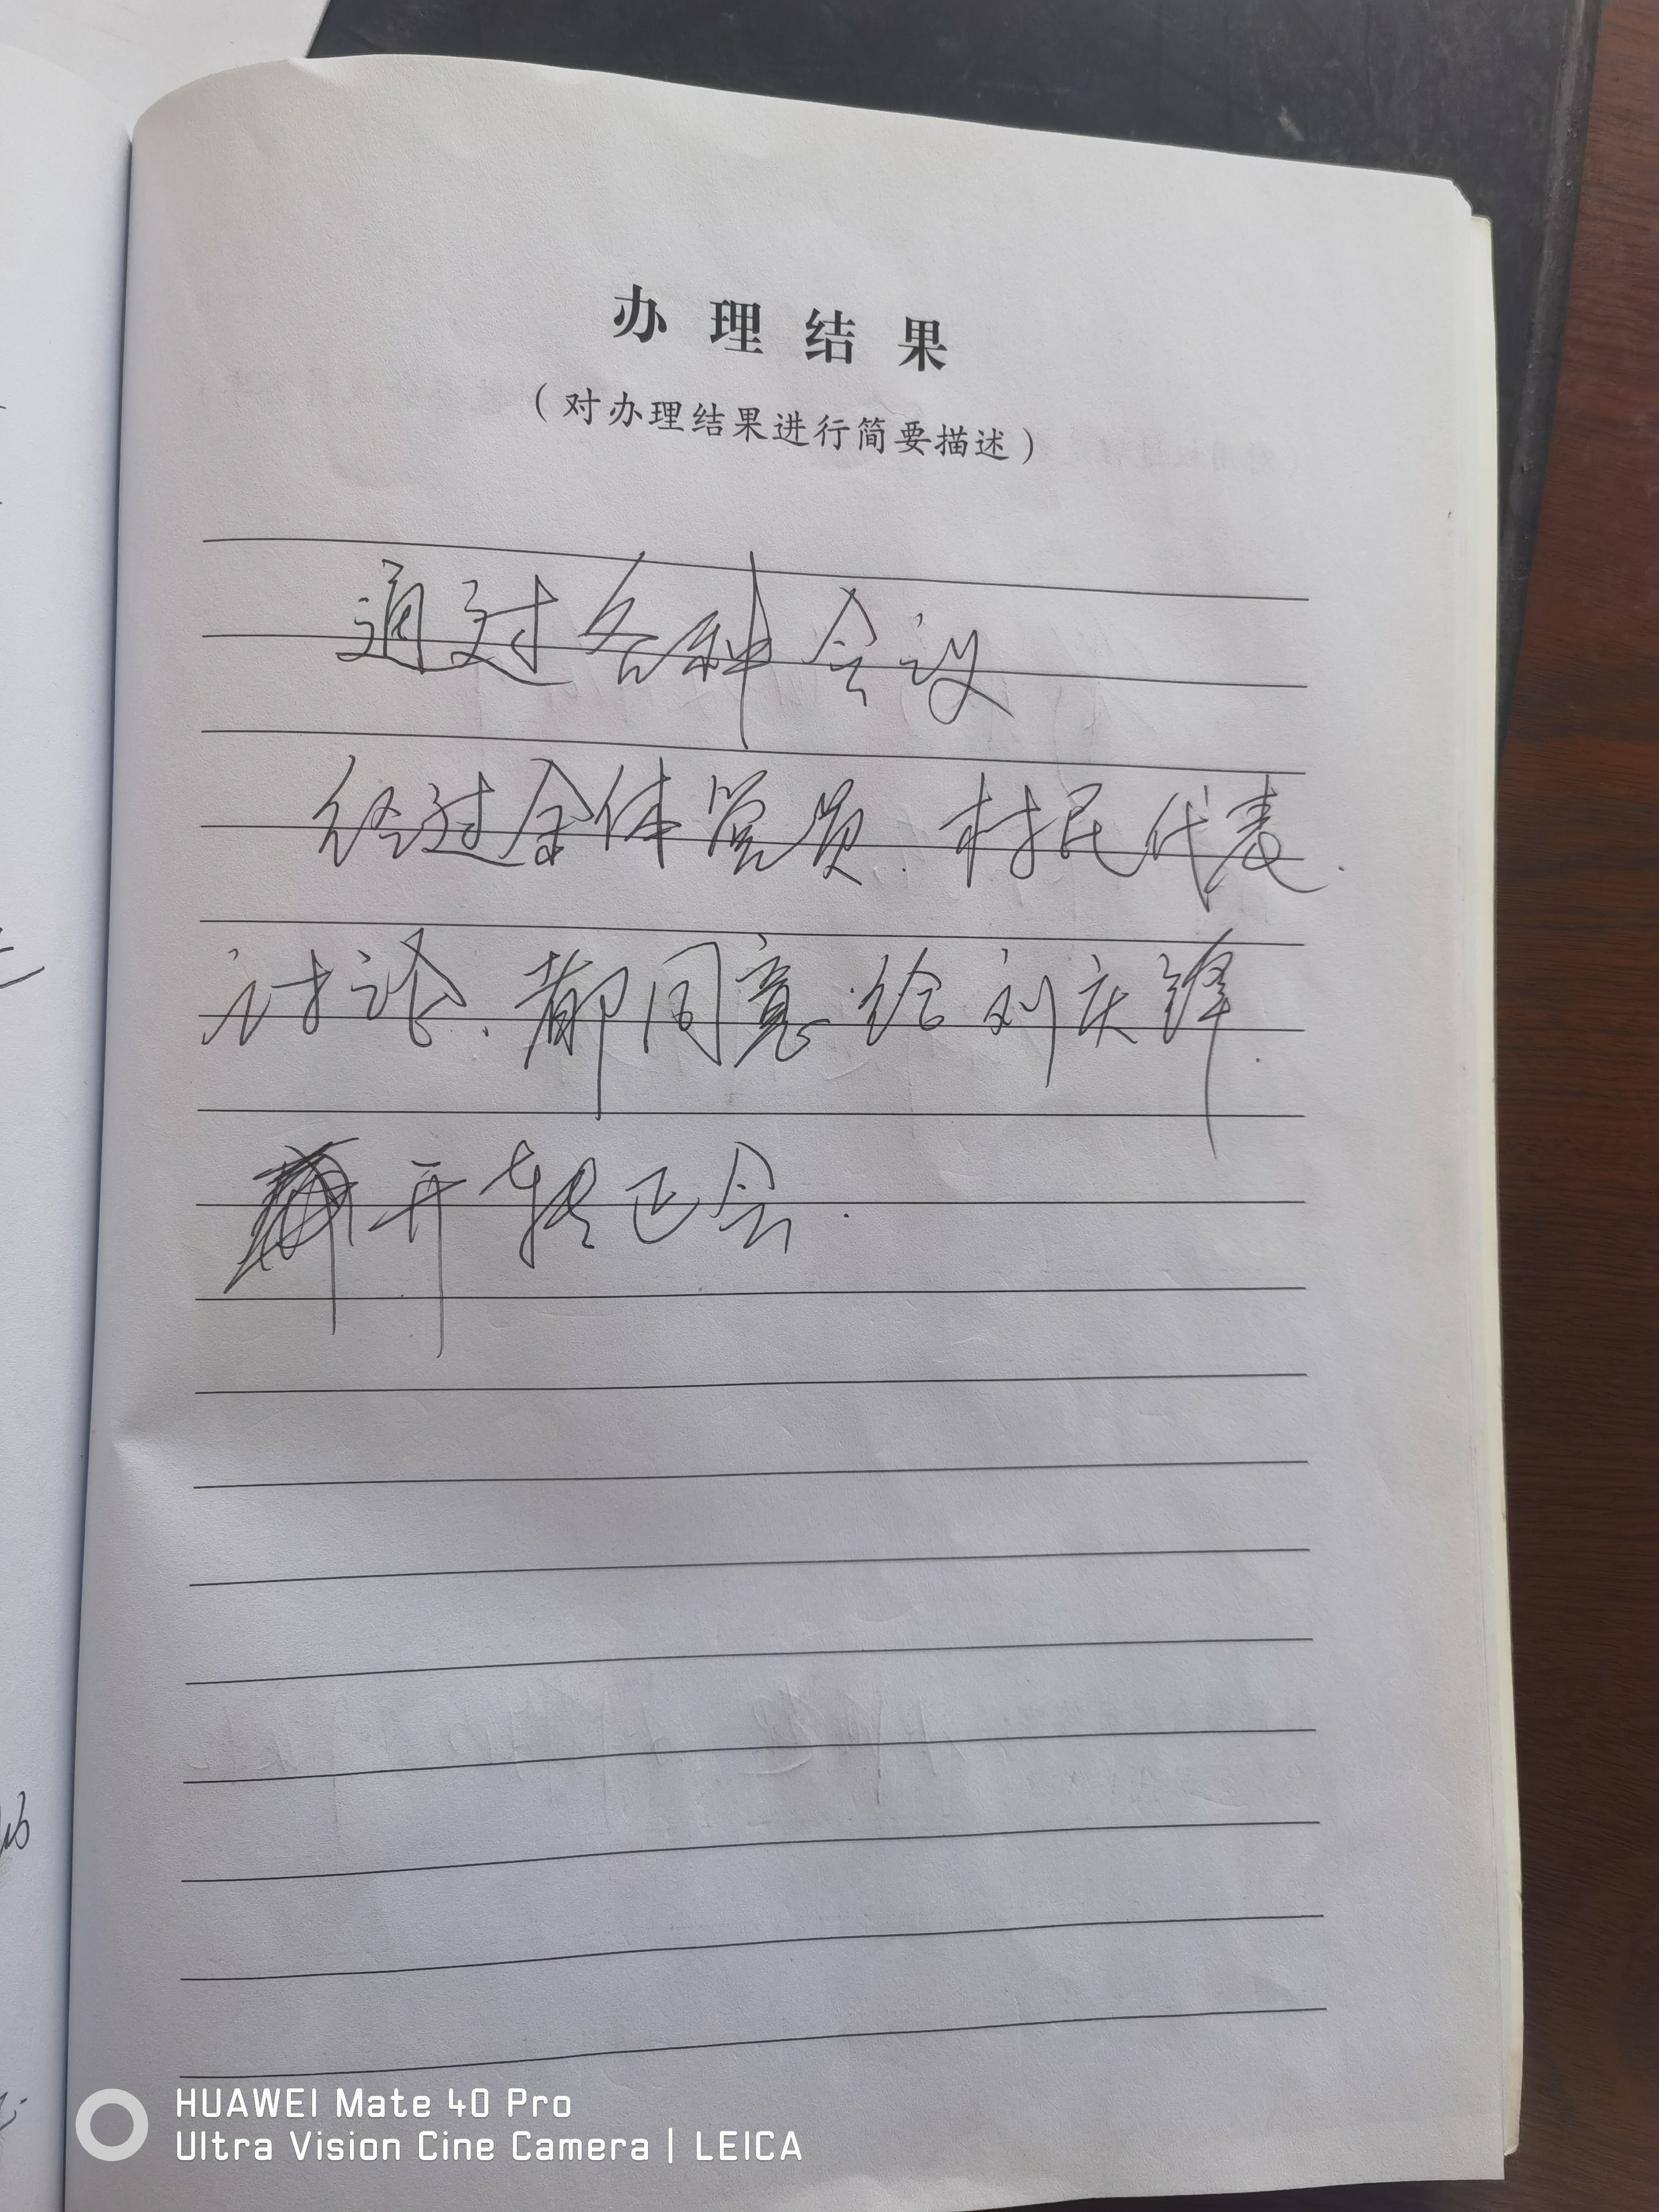 办理结果
(对办理结果进行简要描述)
通过各种会议
经过全体党员.村民代表.
讨论.都同意.给刘庆锋.
开转正会.
HUAWEI Mate 40 Pro
Ultra Vision Cine Camera | LEICA